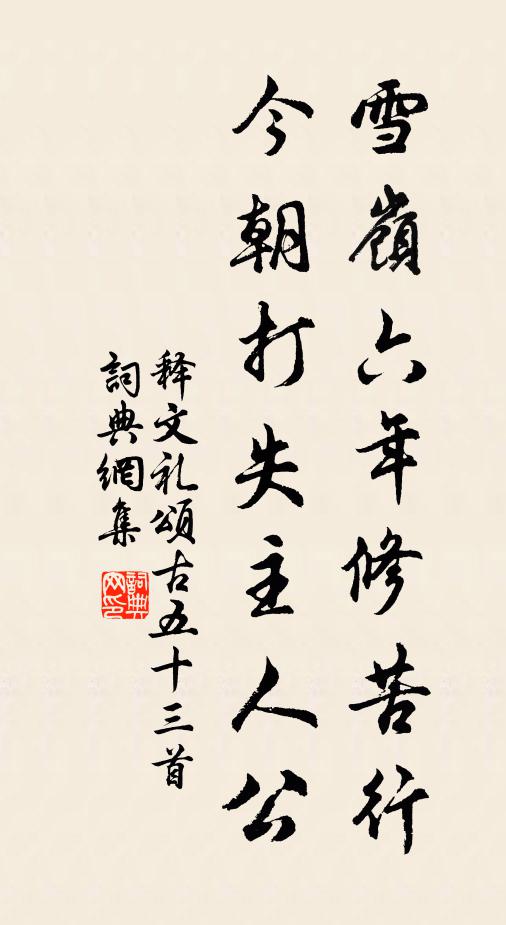 雪嶺六年修苦行
今朝打失主人公
释文礼頌古五十三首
詞典網集
詞典网印